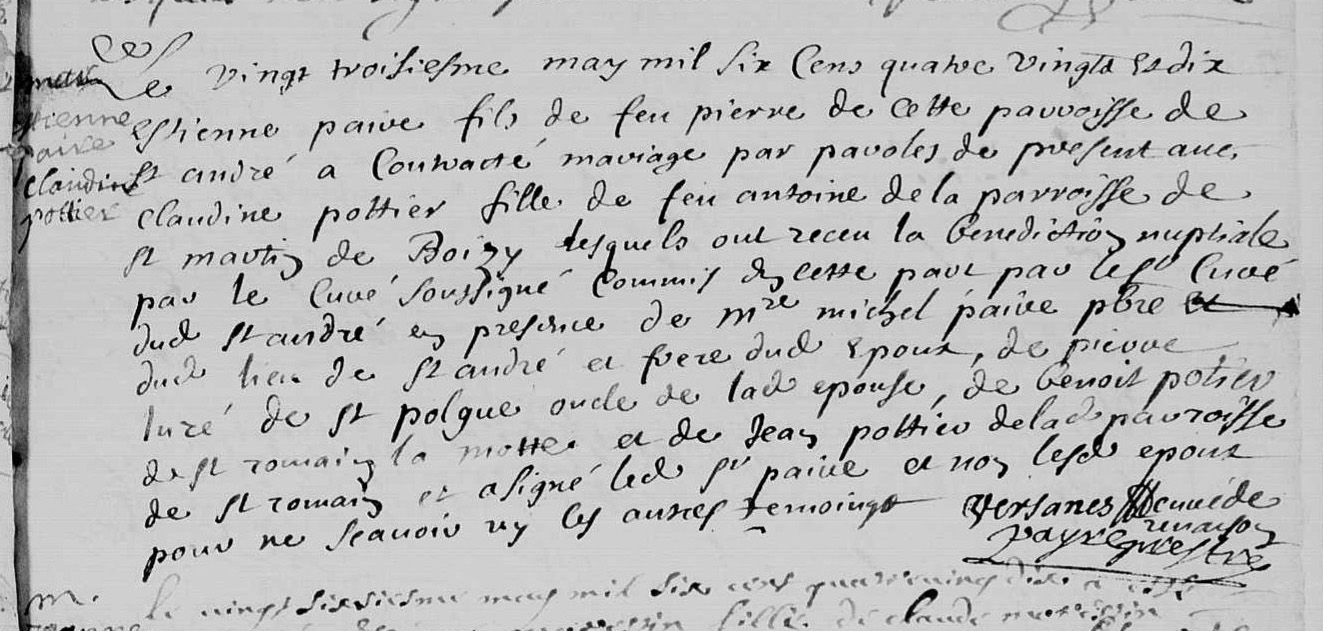 Le vingt troisiesme may mil six Cens quatre vingts et dix
estienne paire fils de feu pierre de cette parroisse de
st andré a Contracté mariage par paroles de present avec
claudine pottier fille de feu antoine de la parroisse de
st martin de Boizy lesquels ont receu la benediction nuptiale
par le Curé soussigné Commis en cette part par le sr Curé
dud st andré en presence de mre michel paire pbre
dud lieu de st andré et frere dud epoux, de pierre
luré de st polgue oncle de lad epouse, de benoit potier
de st romain la motte et de Jean pottier de lad parroisse
de st romain et a signé led sr paire et non lesd epoux
pour ne scavoir ny les autres temoings
Versanes curé de
renaison
payre prestre
estienne
paire
claudine
pottier
le vingt sixiesme may mil six cens quatrevingt dix a esté
fille de claude